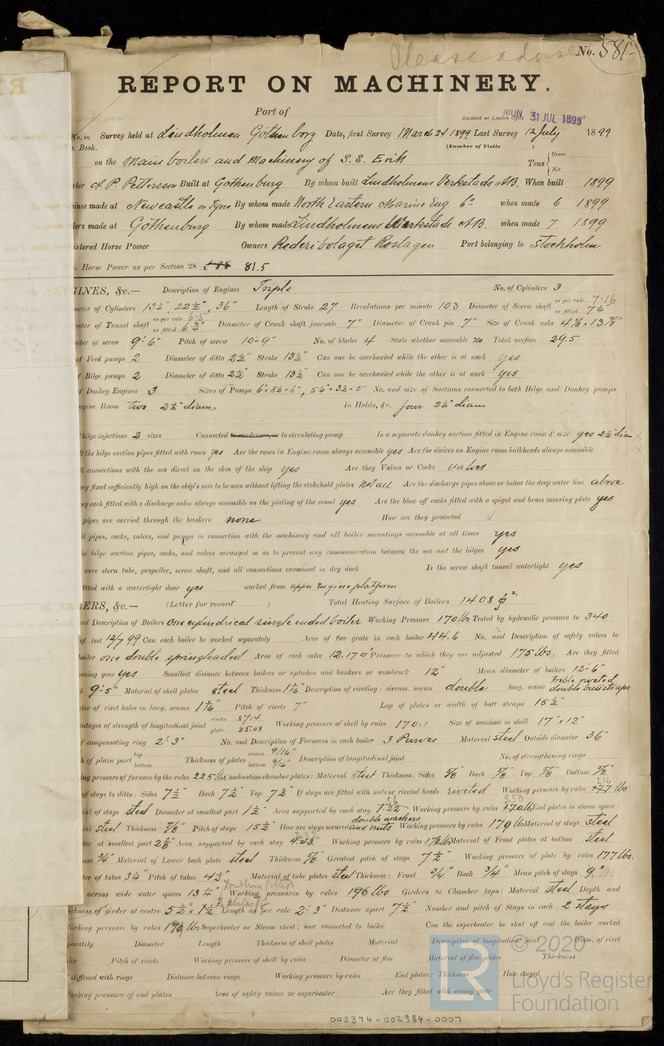 Please advise No. 581
REPORT ON MACHINERY.
Port of
Received at London Office MON. 31 JUL 1899
No. in Survey held at Lindholmen Gothenborg Date, first Survey March 24 1899 Last Survey 12 July 1899
Book. (Number of Visits
on the Main boilers and Machinery of S.S. Erik Tons Gross Net
A. P. Pettersson Built at Gothenburg By whom built Lindholmens Verkstads A.B. When built 1899
made at Newcastle on Tyne By whom made North Eastern Marine Eng Co when made 6 1899
made at Gothenburg By whom made Lindholmens Verkstads A.B. when made 7 1899
Horse Power Owners Port belonging to Stockholm
Horse Power as per Section 28 81.5
GINES, &c.— Description of Engines Triple No. of Cylinders 3
of Cylinders 13½", 22½", 36" Length of Stroke 27 Revolutions per minute 103 Diameter of Screw shaft as per rule 7.16 as fitted 7¼"
of Tunnel shaft as per rule as fitted Diameter of Crank shaft journals 7" Diameter of Crank pin 7" Size of Crank webs
of screw 9'-6" Pitch of screw 10-9" No. of blades 4 State whether moveable no Total surface 29.5
of Feed pumps 2 Diameter of ditto 2½" Stroke 13½" Can one be overhauled while the other is at work yes
of Bilge pumps 2 Diameter of ditto 2½" Stroke 13½" Can one be overhauled while the other is at work yes
of Donkey Engines 3 Sizes of Pumps No. and size of Suctions connected to both Bilge and Donkey pumps
gine Room two 2½" diam. In Holds, &c. four 2½" diam
bilge injections 2 sizes Connected to condenser, or to circulating pump Is a separate donkey suction fitted in Engine room & size yes 2½" diam
the bilge suction pipes fitted with roses yes Are the roses in Engine room always accessible yes Are the sluices on Engine room bulkheads always accessible
connections with the sea direct on the skin of the ship yes Are they Valves or Cocks valves
fixed sufficiently high on the ship's side to be seen without lifting the stokehold plates not all Are the discharge pipes above or below the deep water line above
each fitted with a discharge valve always accessible on the plating of the vessel yes Are the blow off cocks fitted with a spigot and brass covering plate yes
pipes are carried through the bunkers none How are they protected
pipes, cocks, valves, and pumps in connection with the machinery and all boiler mountings accessible at all times yes
bilge suction pipes, cocks, and valves arranged so as to prevent any communication between the sea and the bilges yes
were stern tube, propeller, screw shaft, and all connections examined in dry dock Is the screw shaft tunnel watertight yes
fitted with a watertight door yes worked from upper Engine platform
ERS, &c.— (Letter for record ) Total Heating Surface of Boilers 1408
and Description of Boilers one cylindrical single ended boiler Working Pressure 170 lbs Tested by hydraulic pressure to 340
of test 12/7 99 Can each boiler be worked separately Area of fire grate in each boiler 44.6 No. and Description of safety valves to
boiler one double springloaded Area of each valve 12.17 Pressure to which they are adjusted 175 lbs. Are they fitted
easing gear yes Smallest distance between boilers or uptakes and bunkers or woodwork 12" Mean diameter of boilers 12'-6"
9'-5" Material of shell plates steel Thickness Description of riveting: circum. seams double long. seams treble riveted double buttstraps
of rivet holes in long. seams Pitch of rivets 7" Lap of plates or width of butt straps 15½"
of strength of longitudinal joint rivets 87.4 plate 85.08 Working pressure of shell by rules 170.1 Size of manhole in shell 17" x 12"
of compensating ring 2'-3" No. and Description of Furnaces in each boiler 3 Purves Material steel Outside diameter 36"
of plain part top bottom Thickness of plates crown 9/16" bottom 9/16" Description of longitudinal joint No. of strengthening rings
pressure of furnace by the rules 225 lbs Combustion chamber plates: Material steel Thickness: Sides 5/8 Back 5/8 Top 5/8 Bottom 5/8
of stays to ditto: Sides 7½" Back 7½ Top 7½ If stays are fitted with nuts or riveted heads riveted Working pressure by rules
of stays steel Diameter at smallest part 1½" Area supported by each stay Working pressure by rules 170 lbs End plates in steam space:
steel Thickness Pitch of stays 15½" How are stays secured double washers and nuts Working pressure by rules Material of stays steel
at smallest part Area supported by each stay Working pressure by rules Material of Front plates at bottom steel
3/4" Material of Lower back plate steel Thickness Greatest pitch of stays 7½" Working pressure of plate by rules 177 lbs.
of tubes 3¼" Pitch of tubes 4½" Material of tube plates steel Thickness: Front 3/4" Back 3/4" Mean pitch of stays
across wide water spaces 13¼" Working pressures by rules 196 lbs Girders to Chamber tops: Material steel Depth and
of girder at centre Length as per rule 2'-3" Distance apart 7½" Number and pitch of Stays in each 2 stays
pressure by rules Superheater or Steam chest; how connected to boiler Can the superheater be shut off and the boiler worked
Diameter Length Thickness of shell plates Material Description of longitudinal joint Diam. of rivet
Pitch of rivets Working pressure of shell by rules Diameter of flue Material of flue plates Thickness
stiffened with rings Distance between rings Working pressure by rules End plates: Thickness How stayed
pressure of end plates Area of safety valves to superheater Are they fitted with easing gear
© 2020
LR
Lloyd's Register
Foundation
002374-002384-0007